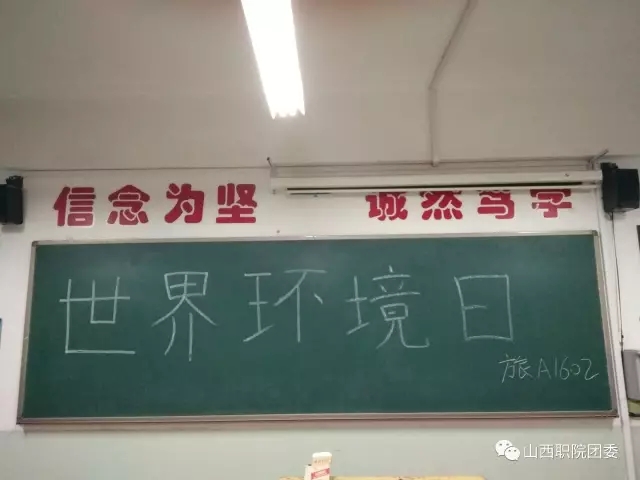 信念为坚 诚然笃学
世界环境日
旅A1602
山西职院团委